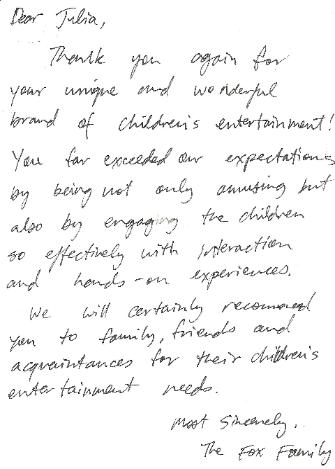 Dear Julia,
Thank you again for
your unique and wonderful
brand of children's entertainment!
You far exceeded our expectations
by being not only amusing but
also by engaging the children
so effectively with interaction
and hands-on experiences.
We will certainly recommend
you to family, friends and
acquaintances for their children's
entertainment needs.
Most Sincerely,
The Fox Family